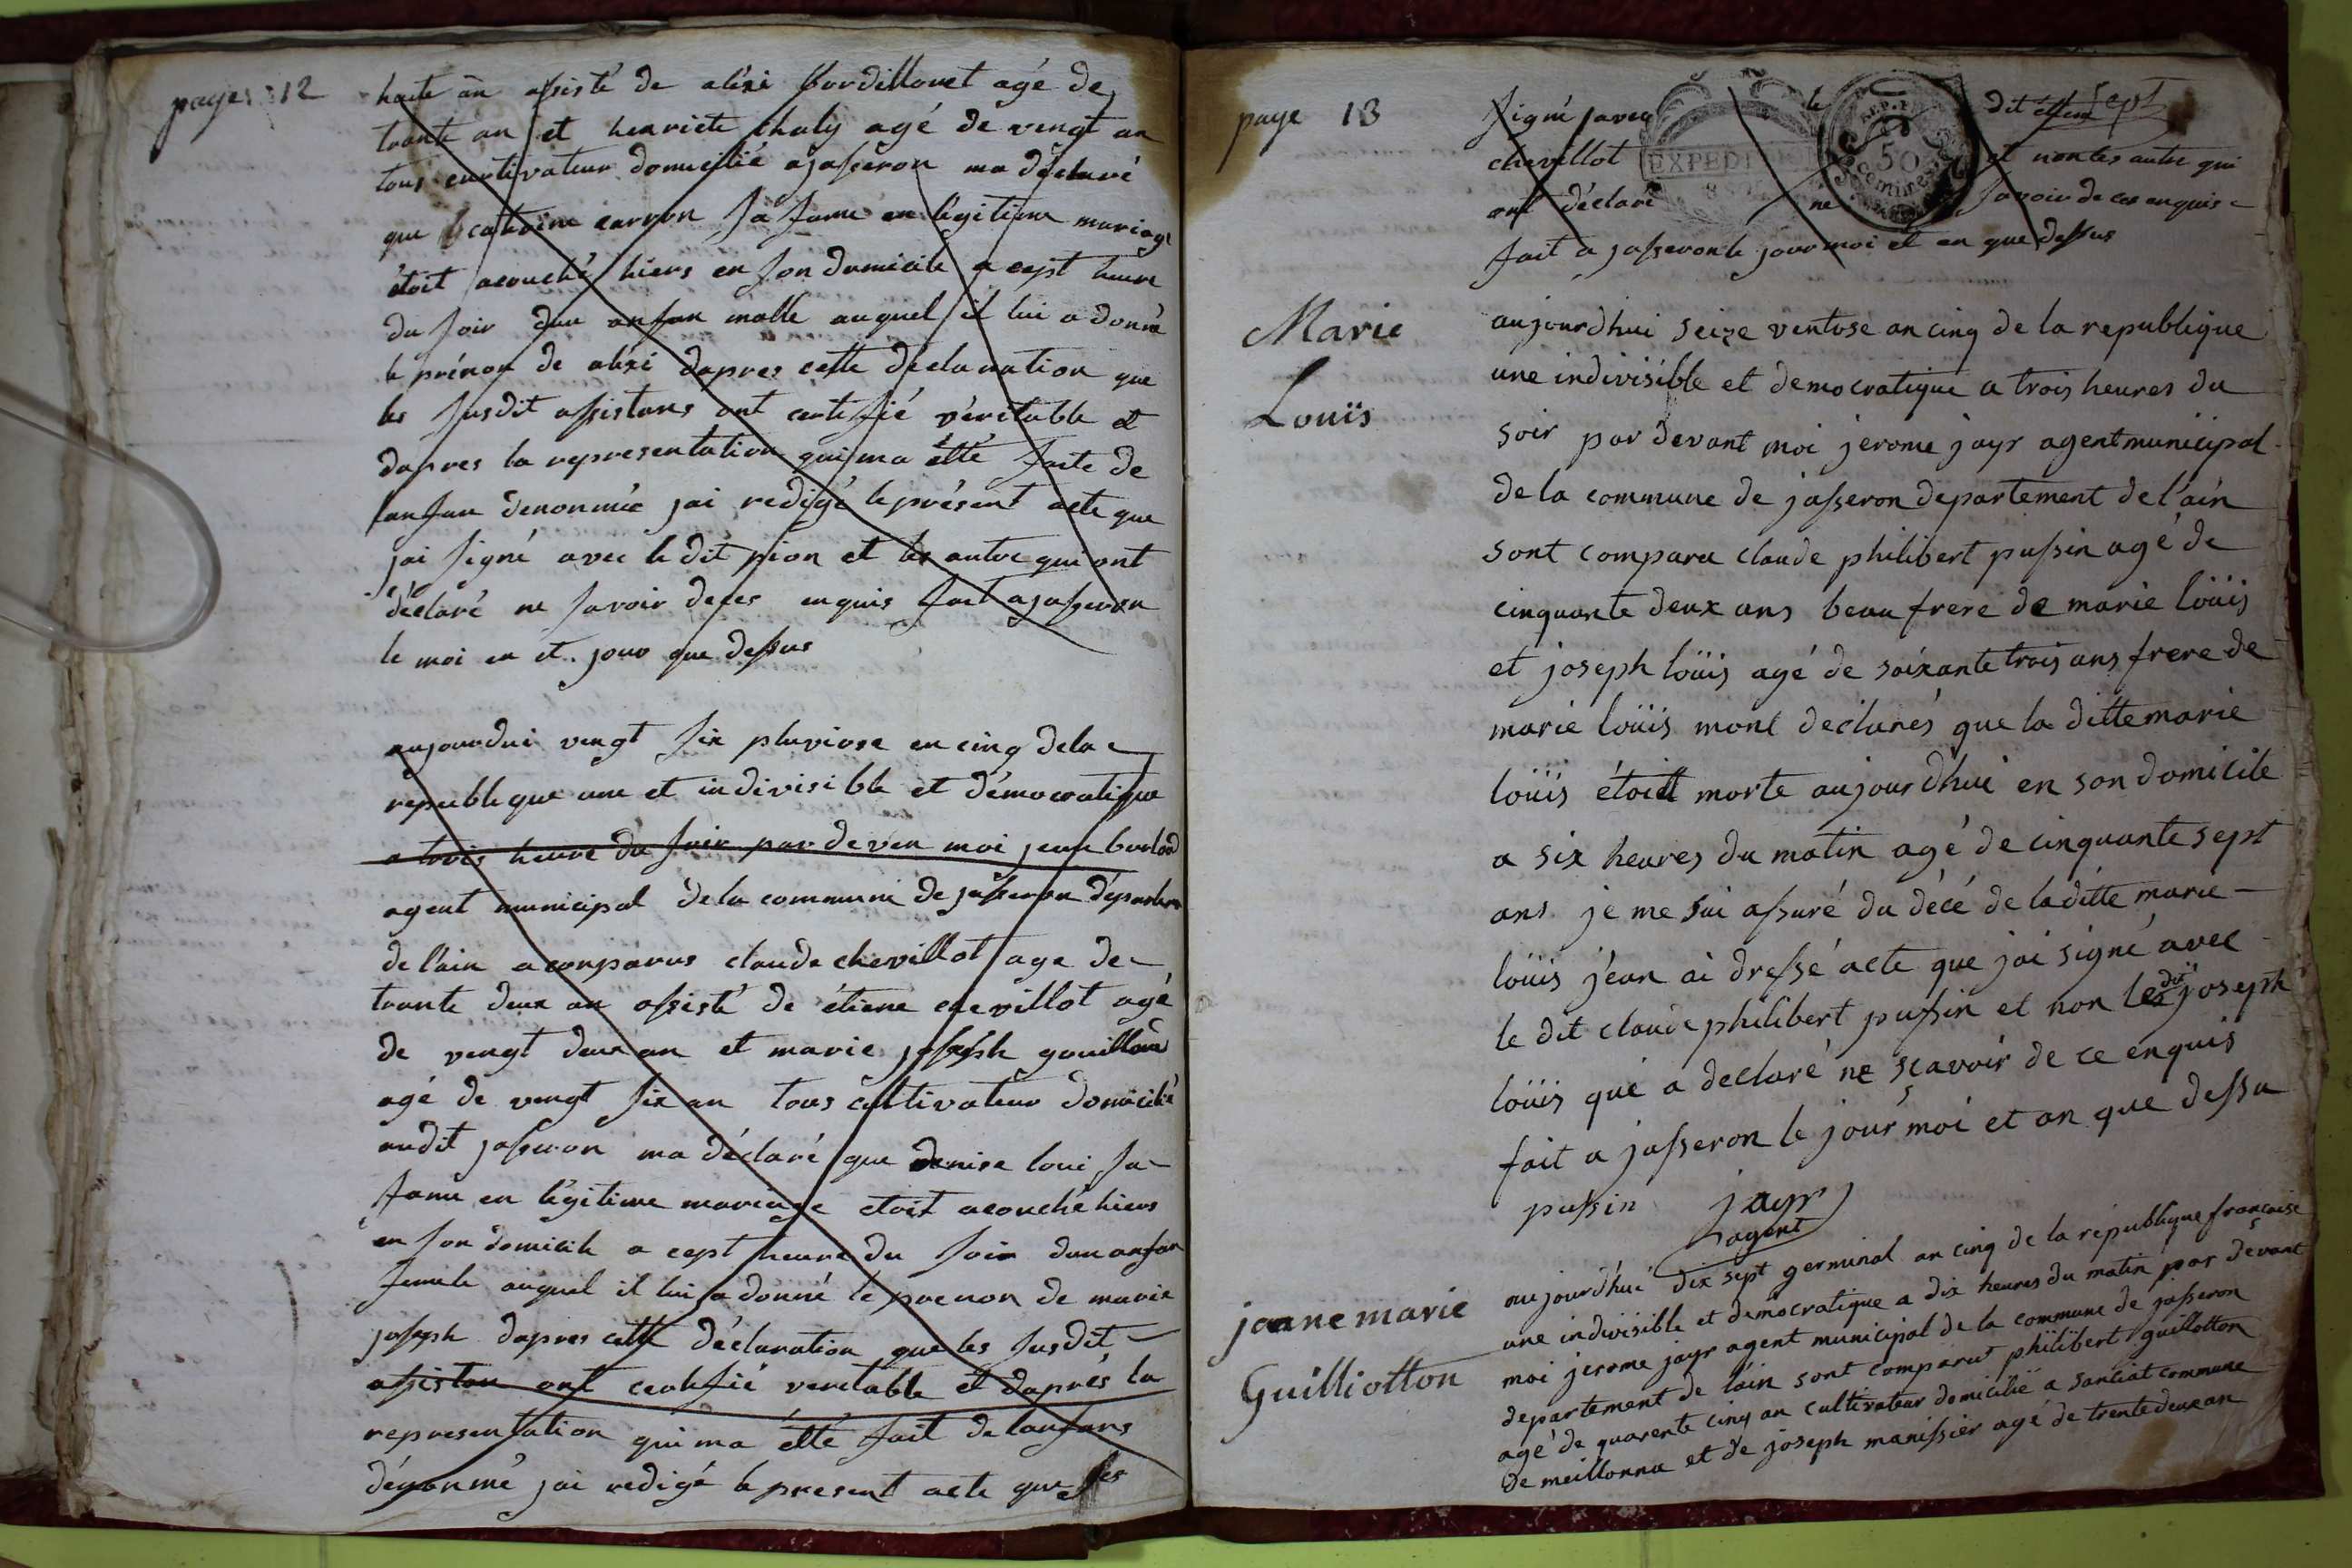 page 12
huite an assisté de alexi bordillonet agé de
trante an et henriete chaly agé de vengt an
tous curtivateur domicilié a jasseron ma déclaré
que catreine carron sa fame en légitime mariage
étoit acouché hiers en son domicile a cept heure
du soir dun anfan malle auquel il lui a donné
le prénon de alexi dapres cette déclaration que
les susdit assistans ont certifié véritable et
dapres la representation qui ma étté faite de
lanfan denonmée jai redigé le présent acte que
jai signé avec le dit pion et les autre qui ont
déclaré ne savoir deces enquis fait a jasseron
le moi en et jour que dessus
aujourdui vengt six pluviose en cinq dela
republique une et indivisible et démocratique
a trois heure du soir par deven moi jean burlod
agent municipal dela commune de jasseron départem
de lain a comparus claude chevillot age de
trante deux an assisté de étiene chevillot agé
de vengt deux an et marie joseph gouilloud
agé de vengt six an tous cultivateur domicilié
audit jasseron ma déclaré que denise loui sa
fame en légitime mariage etoit acouché hiers
en son domicile a cept heure du soir dun anfan
femele auquel il lui a donné le prenon de marie
joseph dapres cette déclaration que les susdit
assistan ont certifié veritable et daprés la
representation qui ma étté fait de lanfans
dénonmé jai redigé le present acte que
page 13
signé avec le dit sept
chevillot EXPEDITION et nontes autre qui
ont déclaré ne savoir de ces enquis
REP. F. 50 centimes
fait a jasseron le jour moi et en que dessus
Marie
Louïs
aujourdhui seize ventose an cinq de la republique
une indivisible et democratique a trois heures du
soir par devant moi jerome jayr agent municipal
de la commune de jasseron departement de l'ain
sont comparu claude philibert pussin agé de
cinquante deux ans beau frere de marie loüis
et joseph loüis agé de soixante trois ans frere de
marie loüis mont declarés que la ditte marie
loüis étoit morte aujourdhui en son domicile
a six heures du matin agé de cinquante sept
ans je me sui assuré du décé de la ditte marie
loüis j'ean ai dressé acte que jai signé avec
le dit claude philibert pussin et non le dit joseph
loüis qui a declaré ne sçavoir de ce enquis
fait a jasseron le jour moi et an que dessu
pussin jayr
agent
jeanne marie
Guilliotton
aujourdhui dix sept germinal an cinq de la république françoise
une indivisible et democratique a dix heures du matin par devant
moi jerome jayr agent municipal de la commune de jasseron
departement de lain sont comparut philibert guillotton
agé de quarente cinq an cultivateur domicilié a sanciat commune
de meillonna et de joseph manissier agé de trente deux an